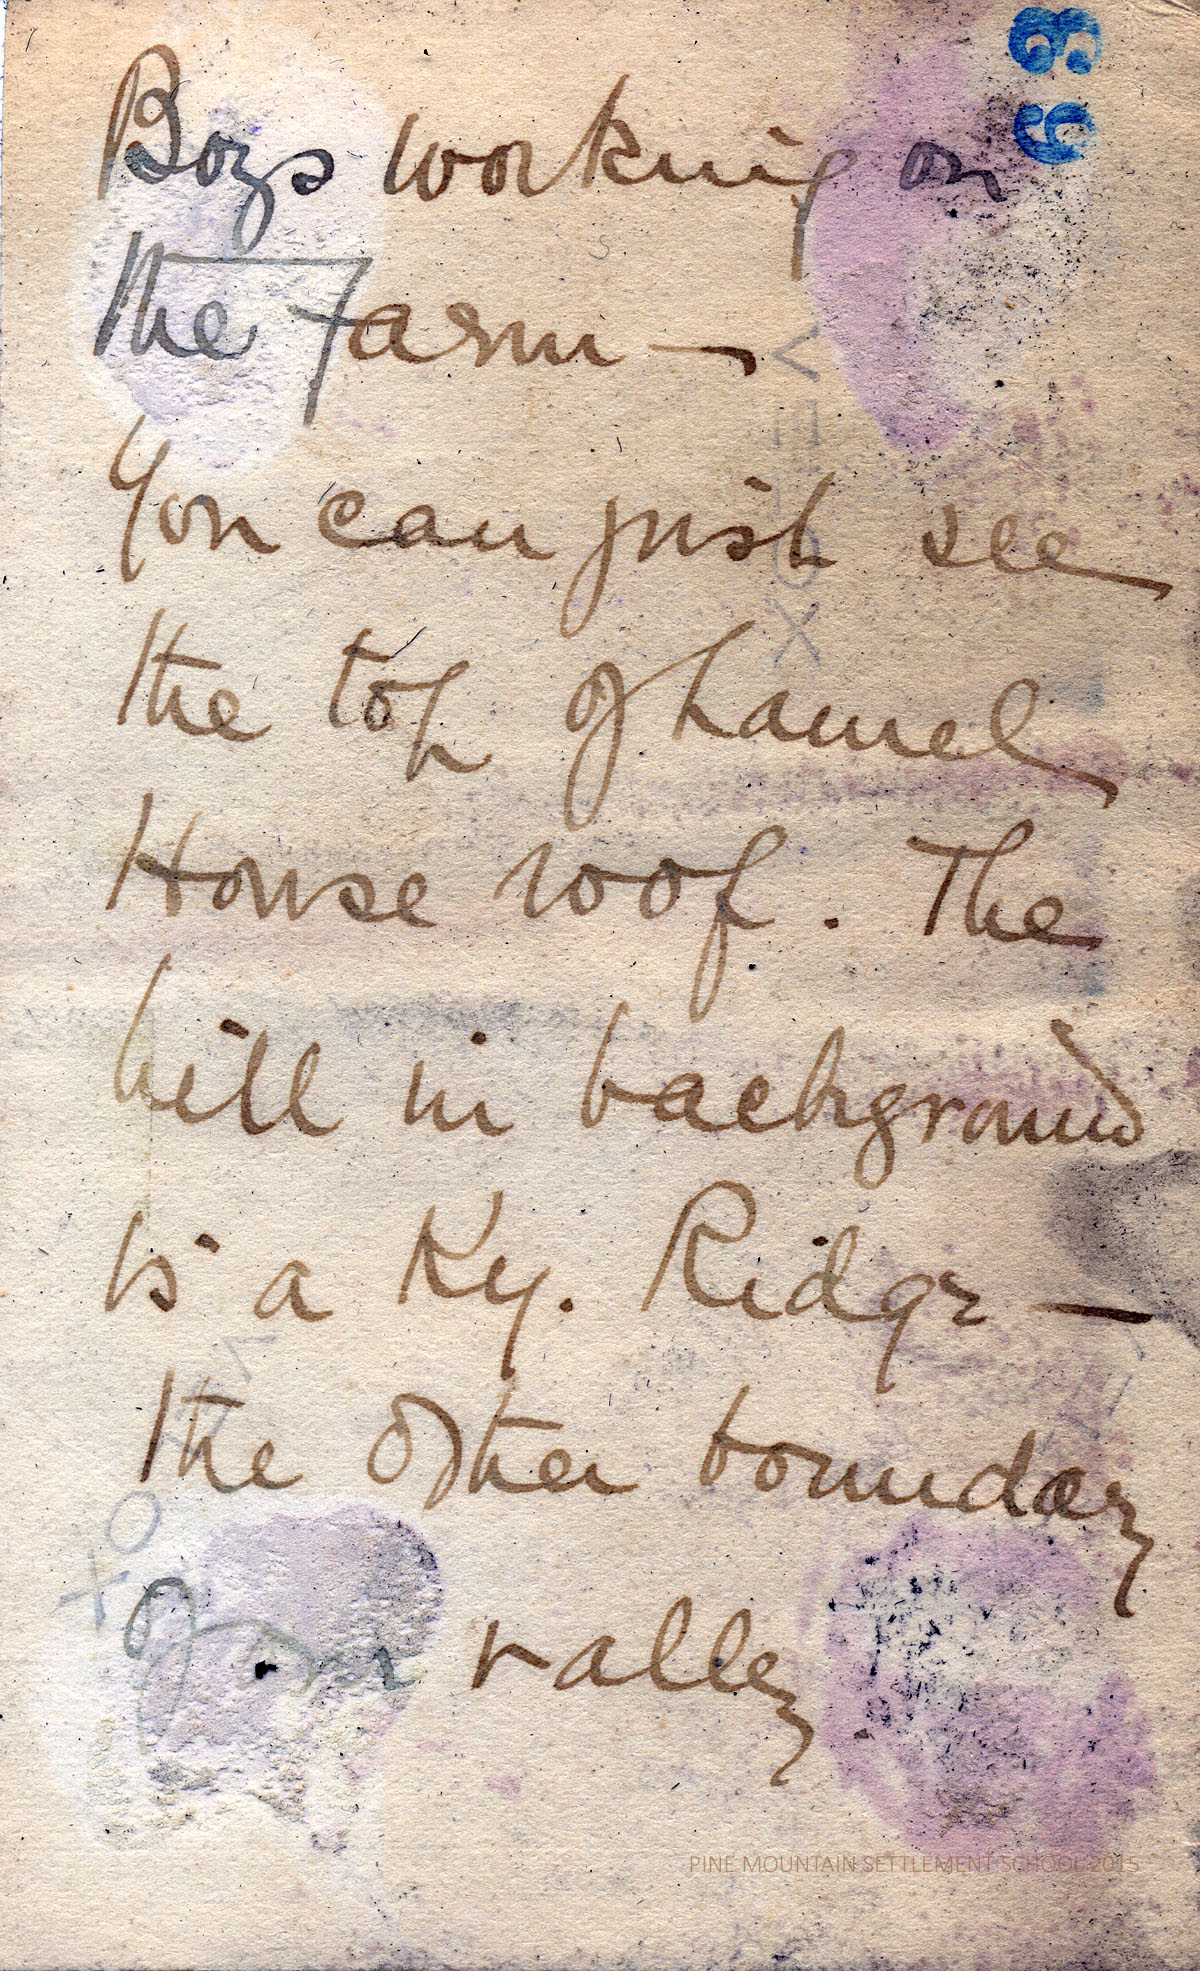 63
Boys working on
the Farm —
You can just see
the top of Laurel
House roof. The
hill in background
is a Ky. Ridge —
the other boundary
of our valley.
PINE MOUNTAIN SETTLEMENT SCHOOL 2015